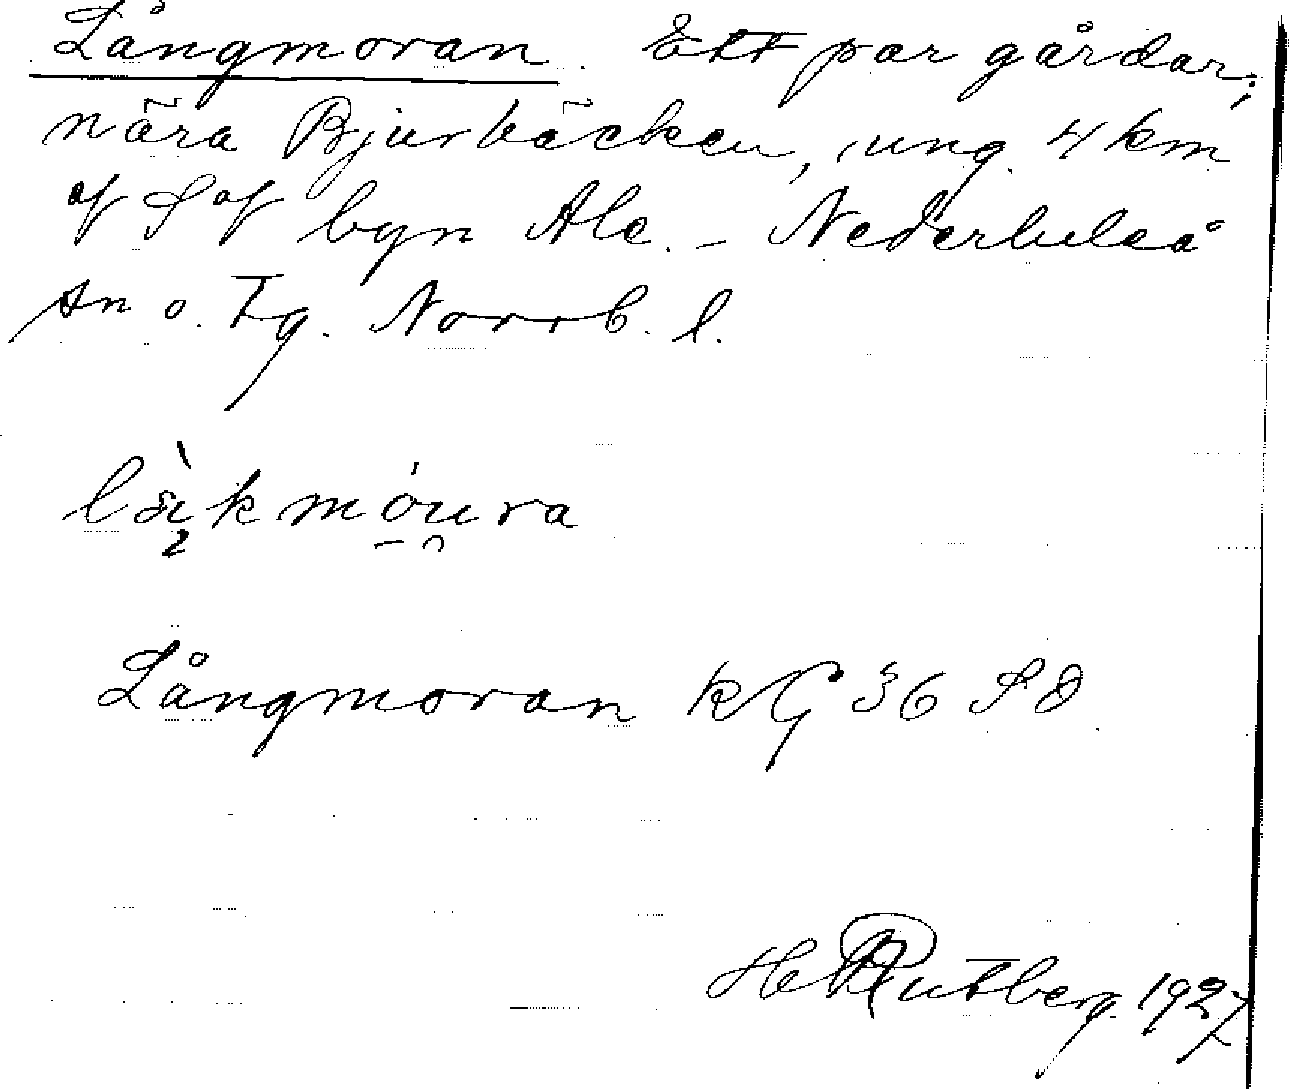 Långmoran. Ett par gårdar;
nära Bjurbäcken, ung. 4 km
af S af byn Ale. – Nederluleå
sn o. Tg. Norrb. l.
móura
Långmoran kG 36 SO.
H Rutberg. 1927